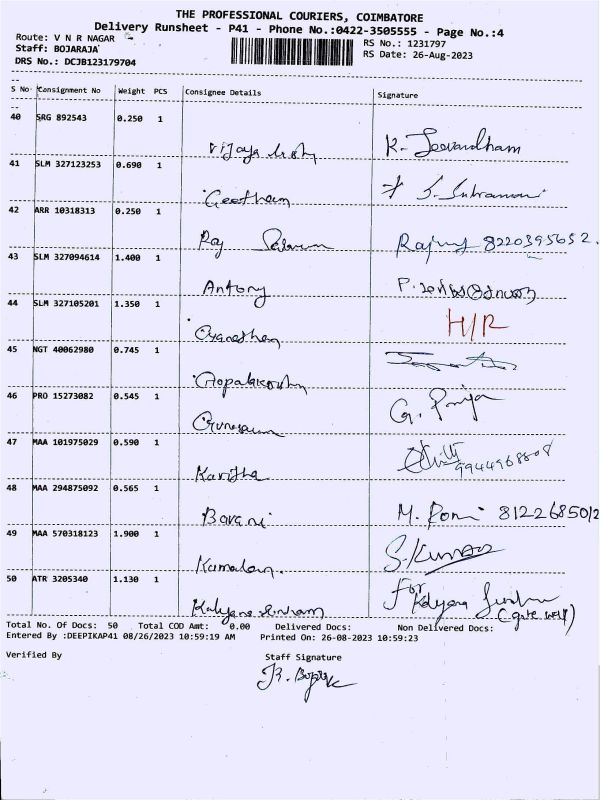 THE PROFESSIONAL COURIERS, COIMBATORE
Delivery Runsheet - P41 - Phone No.:0422-3505555 - Page No.:4
Route: V N R NAGAR
RS No.: 1231797
Staff: BOJARAJA
RS Date: 26-Aug-2023
DRS No.: DCJB123179704
S No Consignment No Weight PCS Consignee Details Signature
40 SRG 892543 0.250 1
K. Jeevandham
41 SLM 327123253 0.690 1
Geetham
42 ARR 10318313 0.250 1
Raj 8220395652.
43 SLM 327094614 1.400 1
Antony P.
44 SLM 327105201 1.350 1
Ganeshan H/R
45 NGT 40062980 0.745 1
46 PRO 15273082 0.545 1
G. Priya
47 MAA 101975029 0.590 1
Kavitha 9944968808
48 MAA 294875092 0.565 1
Bavani M. Romi 8122685012
49 MAA 570318123 1.900 1
Kamalan. S. Kumar
50 ATR 3205340 1.130 1
For Kalyana
Total No. Of Docs: 50 Total COD Amt: 0.00 Delivered Docs: Non Delivered Docs:
Entered By :DEEPIKAP41 08/26/2023 10:59:19 AM Printed On: 26-08-2023 10:59:23
Verified By Staff Signature